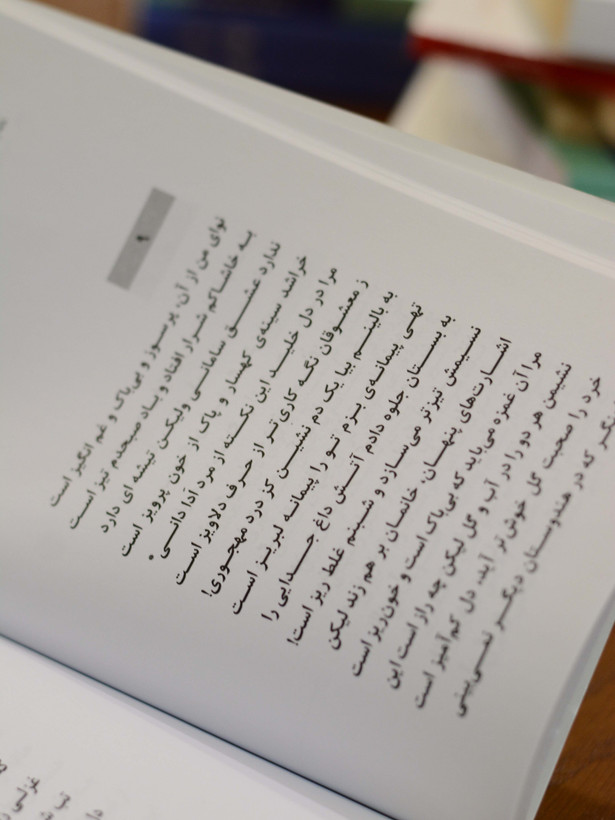 ۹
نوای من از آن پرسوز و بی‌باک و غم انگیز است
به خاشاکم شرار افتاد و باد صبحدم تیز است
ندارد عشق سامانی ولیکن تیشه ای دارد
خراشد سینه‌ی کهسار و پاک از خون پرویز است
مرا در دل خلید این نکته از مرد ادا دانی
ز معشوقان نگه کاری تر از حرف دلاویز است
به بالینم بیا یک دم نشین کز درد مهجوری!
تهی پیمانه‌ی بزم تو را پیمانه لبریز است
به بستان جلوه دادم آتش داغ جدایی را
نسیمش تیزتر می‌سازد و شبنم غلط ریز است!
اشارت‌های پنهان، خانمان بر هم زند لیکن
مرا آن غمزه می‌باید که بی‌باک است و خون‌ریز است
نشیمن هر دو را در آب و گل لیکن چه راز است این
خرد را صحبت گل خوش‌تر آید، دل کم‌آمیز است
که در هندوستان دیگر نمی‌بینی
غزلی